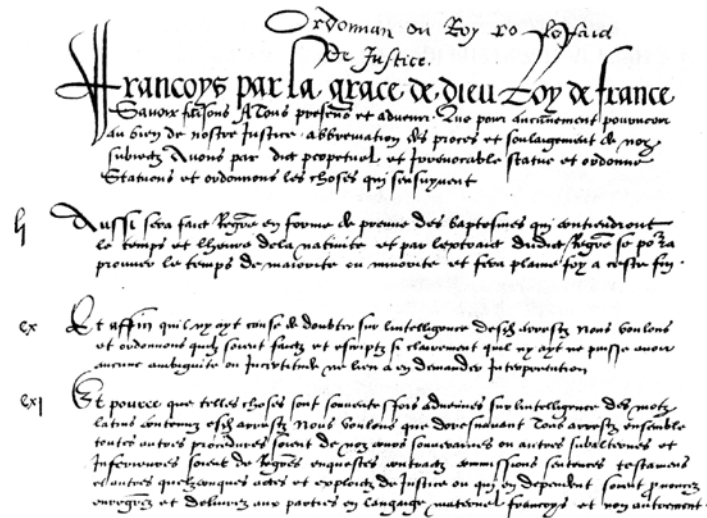 Ordonnan du Roy
De Justice.
Francoys par la grace de dieu Roy de france
Savoir faisons A tous presens et advenir Que pour aucunement pourveoir
au bien de nostre Justice abbreviation des proces et soulaigement de noz
subiectz Avons par edict perpetuel et Irrevocable statue et ordonne
Statuons et ordonnons les choses qui sensuyvent
li
Aussi sera faict Regre en forme de preuve des baptesmes qui contiendront
le temps et lheure dela nativite et par lextraict dudict Regre se pora
prouver le temps de maiorite ou minorite et fera plaine foy a ceste fin.
cx
Et affin quil ny ayt cause de doubter sur lintelligence desdz arrestz Nous voulons
et ordonnons quilz soient faictz et escriptz si clairement quil ny ayt ne puisse avoir
aucune ambiguite ou Incertitude ne lieu a en demander Interpretation
cxi
Et pource que telles choses sont souventesfois advenues sur lintelligence des motz
latins contenuz esdz arrestz Nous voulons que doresnavant tous arrestz ensemble
toutes autres procedures soient de noz cours souveraines ou autres subalternes et
Inferieures soient de Regres enquestes contractz commissions sentences testamens
et autres quelzconques actes et exploictz de Justice ou qui en dependent soient pnoncez
enregrez et delivrez aux parties en langaige maternel francoys et non autrement.